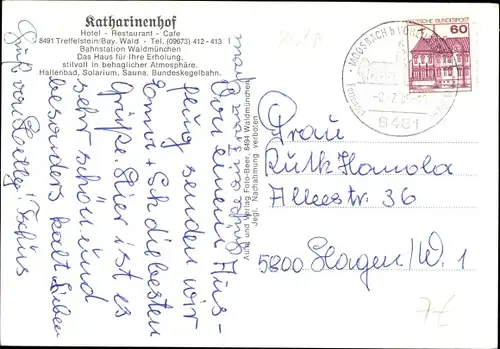 Katharinenhof
Hotel - Restaurant - Cafe
8491 Treffelstein/Bay. Wald - Tel. (09673) 412-413
Bahnstation Waldmünchen
Das Haus für Ihre Erholung,
stilvoll in behaglicher Atmosphäre.
Hallenbad, Solarium, Sauna, Bundeskegelbahn.
Von einem Aus-
flug senden wir
Emma + Ich die besten
Grüße. Hier ist es
sehr schön und
besonders kalt. Lieben
Gruß von
Tschüs
Aufn. und Verlag Foto-Beer, 8494 Waldmünchen
Jegl. Nachahmung verboten
MOOSBACH b
8481
DEUTSCHE BUNDESPOST
60
Frau
Ruth Hamola
Alleestr. 36
5800 Hagen/W. 1
7€